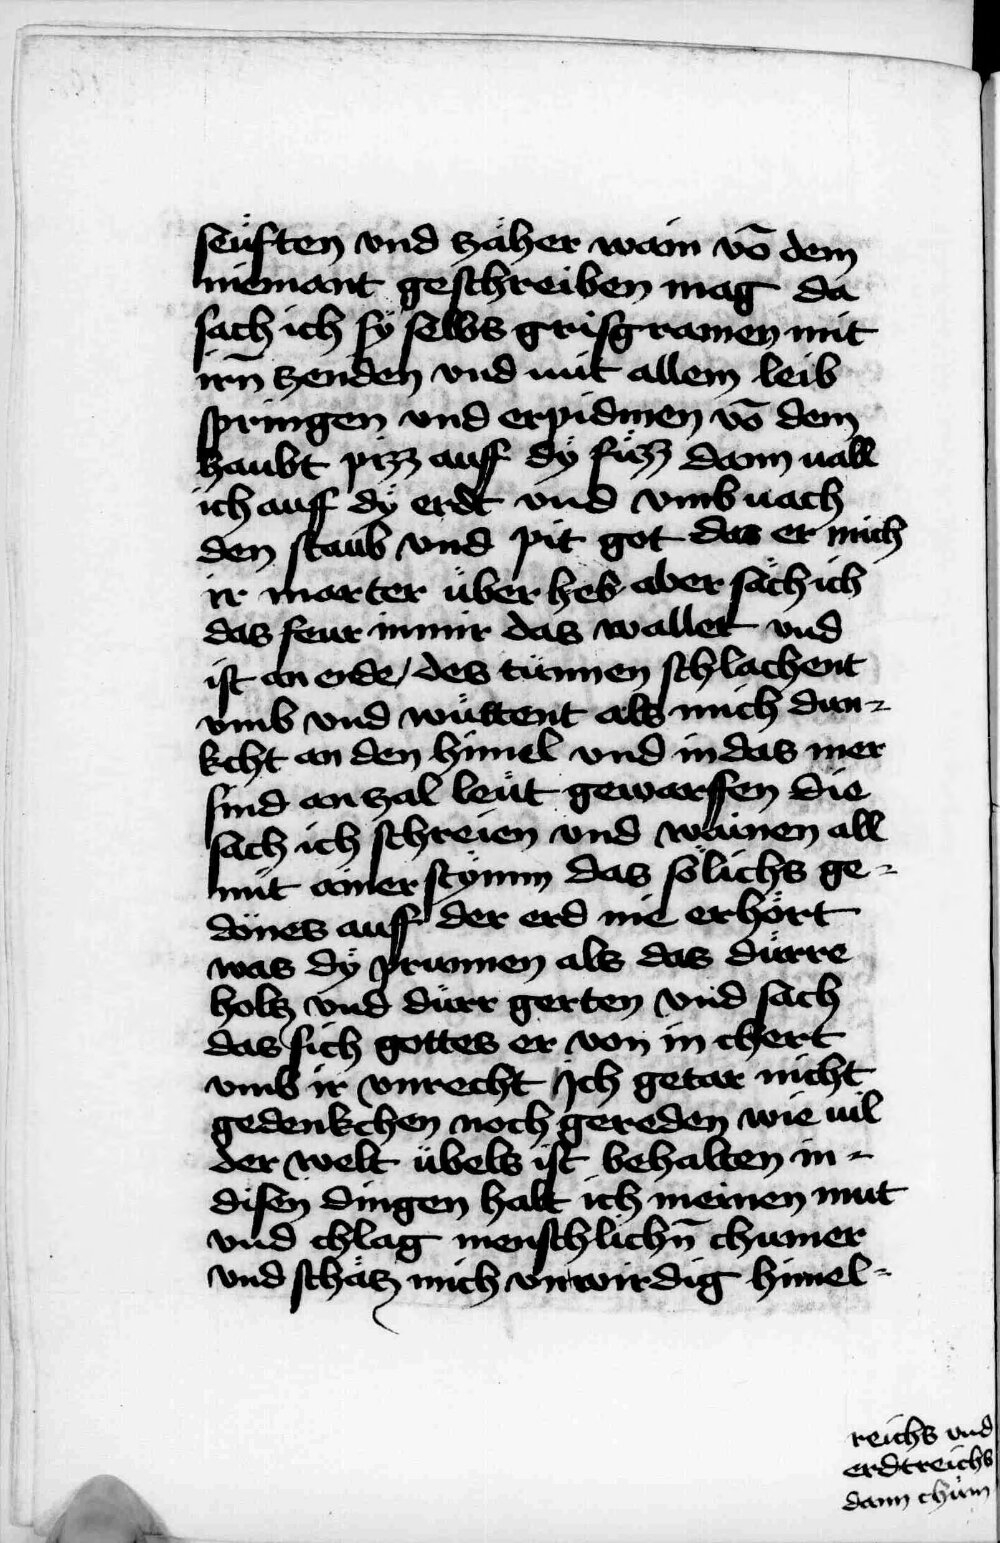 seüften vnd zäher wain vō dem
niemant geschreiben mag da
sach ich sÿ selbs grisgramen mit
irn̄ zenden vnd mit allem leib
springen vnd erpidmen vō dem
haubt pizz auff dÿ füzz dann uall
ich auff dÿ erdt vnd vmbuach
den staub vnd pit got das er mich
ir marter über heb aber säch ich
das feur in mir das wallet vnd
ist an ende / des tünnen schlachent
vmb vnd wüttent als mich dun-
kcht an den himel vnd in das mer
sind an zal leüt geworffen die
sach ich schreien vnd wainen all
mit ainer stÿmm das sölichs ge-
dönes auff der erd nie erhört
was dÿ prunnen als das dürre
holtz vnd dürr gerten vnd sach
das sich gottes er von in chert
vmb ir vnrecht Jch getar nicht
gedenkchen noch gereden wie uil
der welt übels ist behalten in -
disen dingen halt ich meinen mut
vnd chlag menschlichn̄ chumer
vnd schätz mich vnwirdig himel-
reichs vnd
erdtreichs
dann chüm